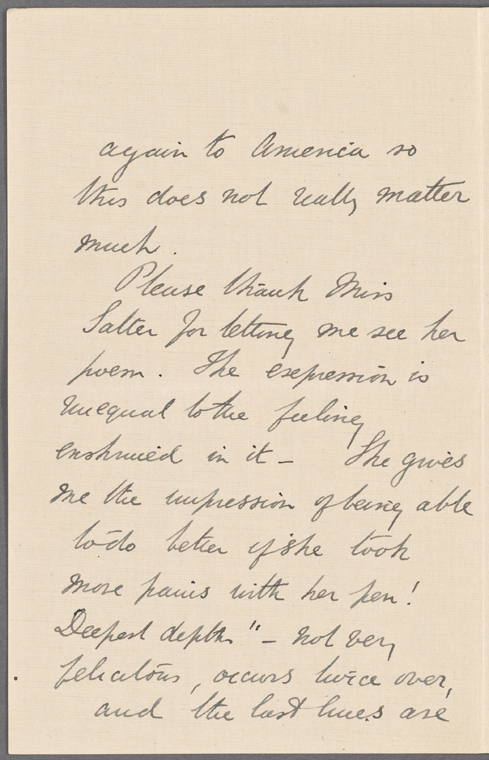 again to America so
this does not really matter
much.
Please thank Miss
Salter for letting me see her
poem. The expression is
unequal to the feeling
enshrined in it – She gives
me the impression of being able
to do better if she took
more pains with her pen!
Deepest depths" – not very
felicitous, occurs twice over,
and the last lines are